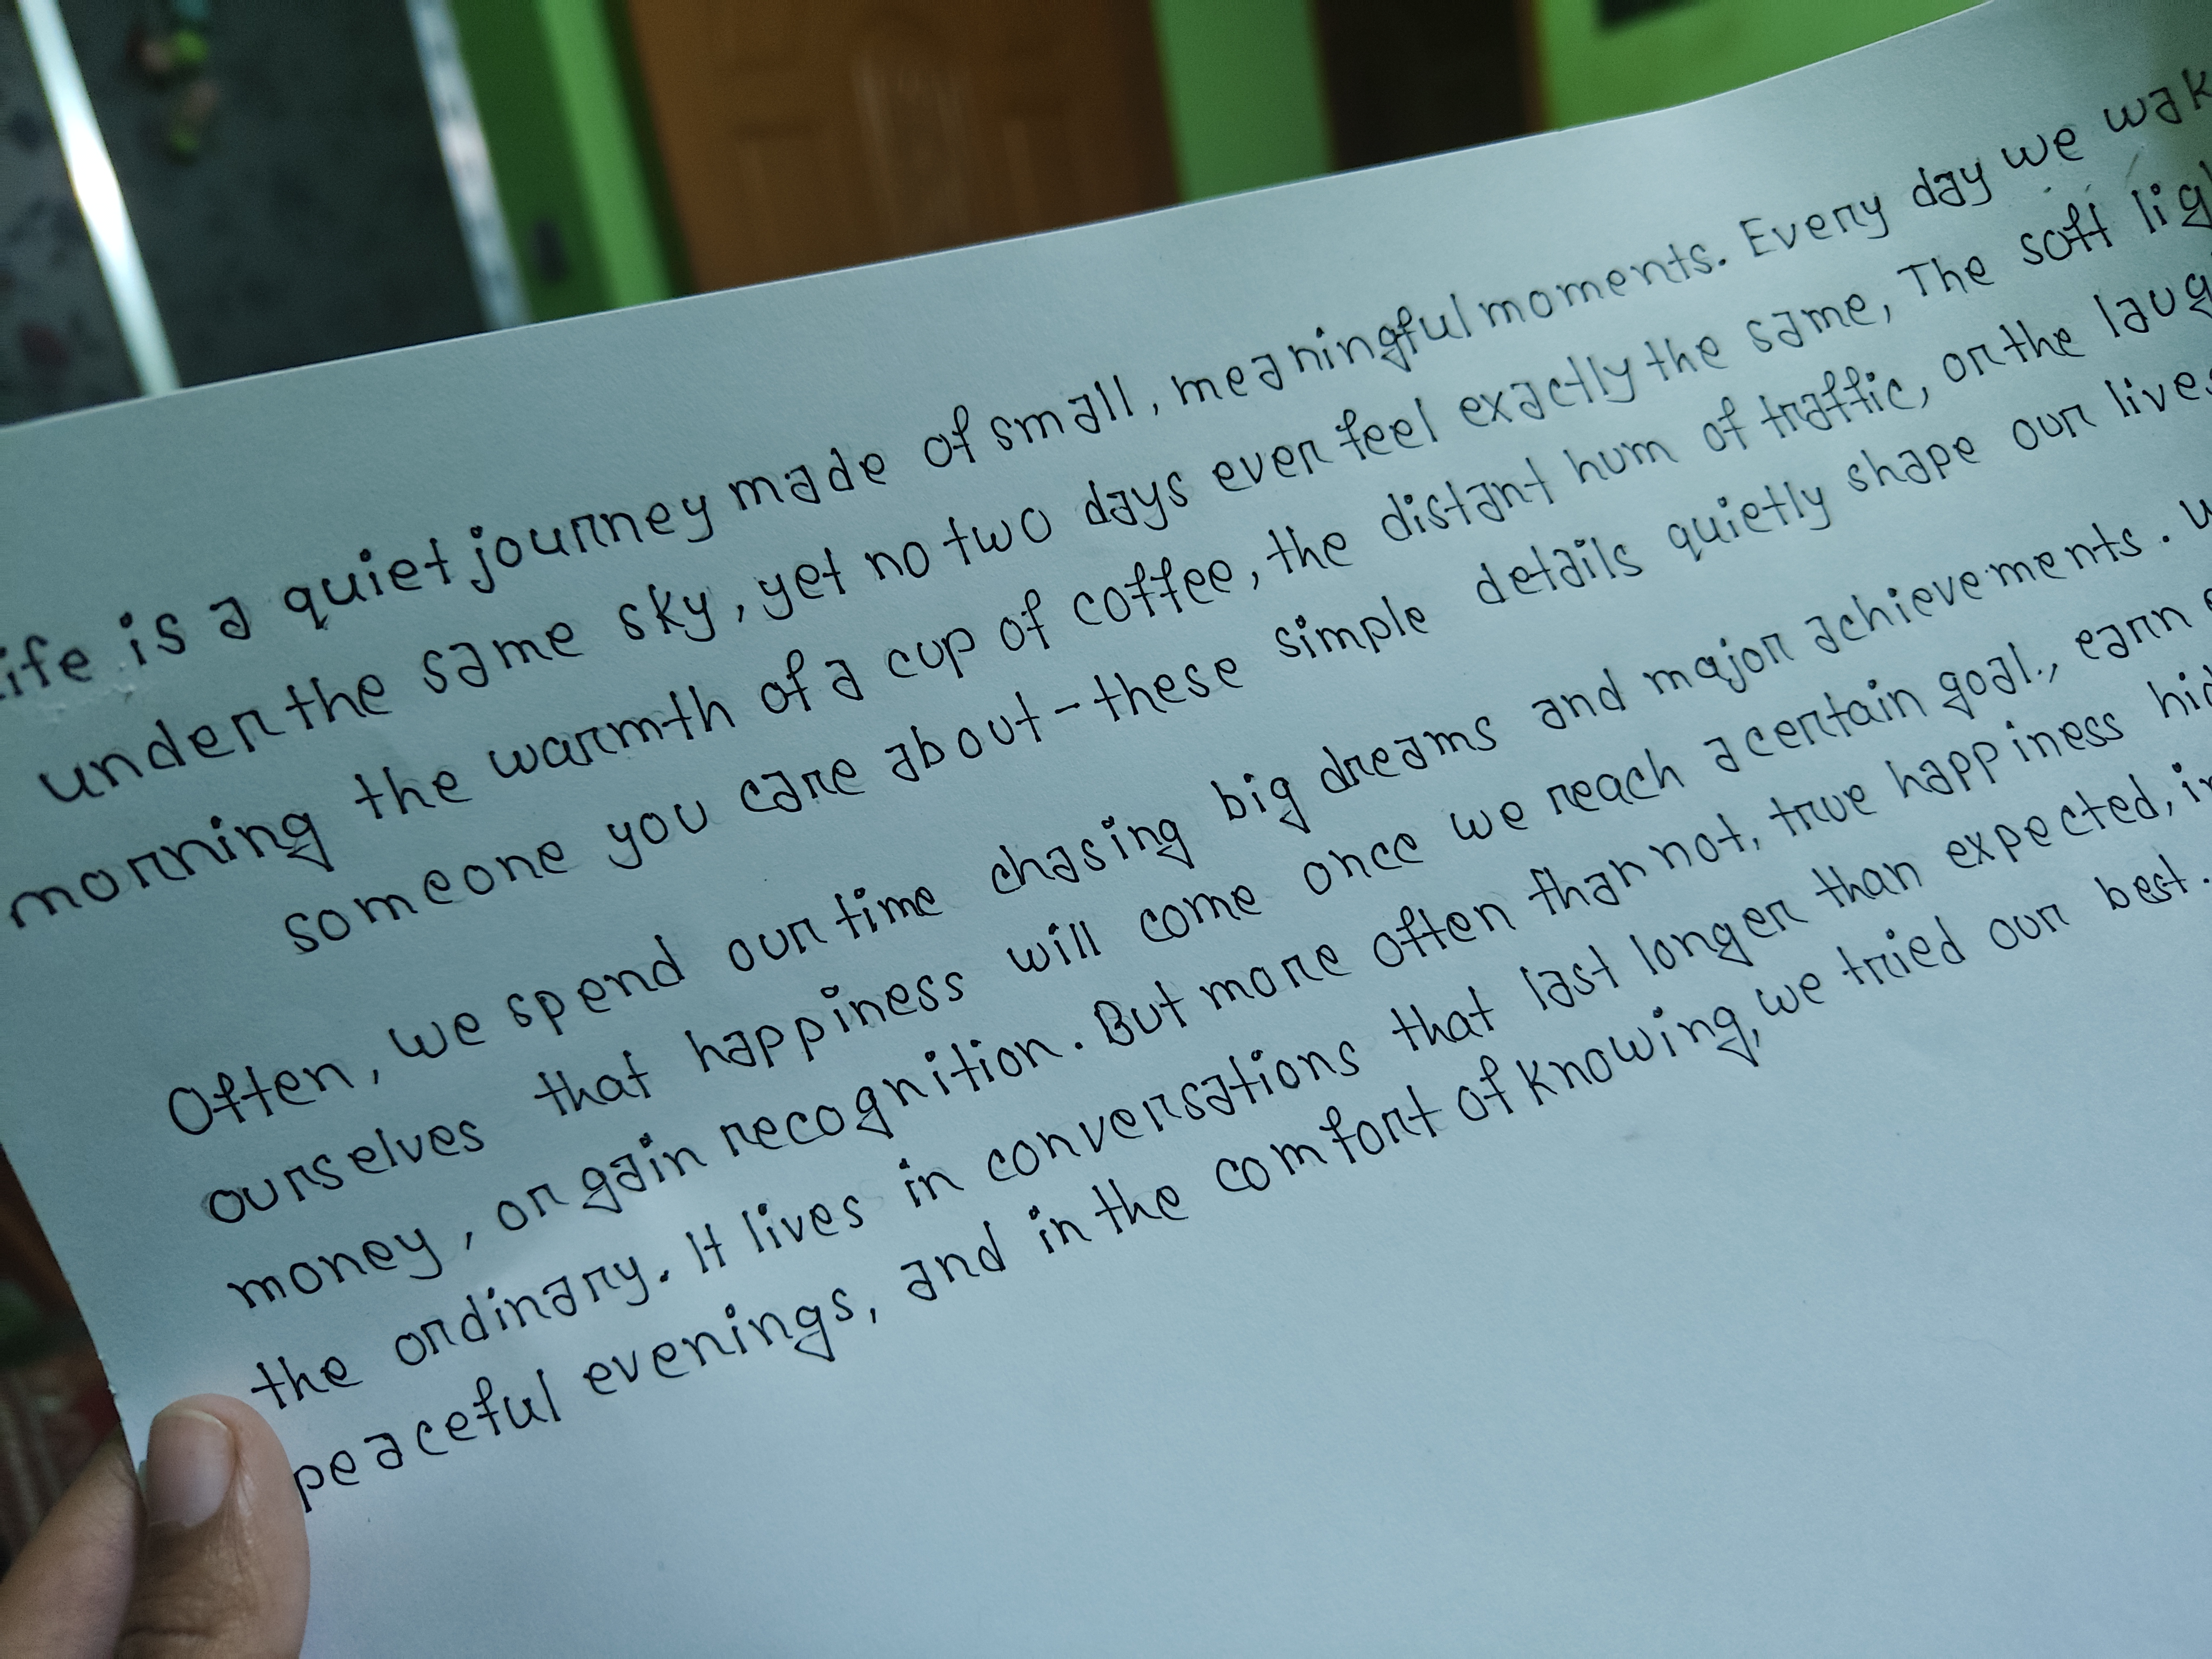 ife is a quiet journey made of small, meaningful moments. Every day we wak
under the same sky, yet no two days ever feel exactly the same, The soft lig
morning the warmth of a cup of coffee, the distant hum of traffic, or the laug
someone you care about - these simple details quietly shape our lives
Often, we spend our time chasing big dreams and major achievements.
ourselves that happiness will come once we reach a certain goal., earn
money, or gain recognition. But more often than not, true happiness hid
the ordinary. It lives in conversations that last longer than expected, in
peaceful evenings, and in the comfort of knowing, we tried our best.